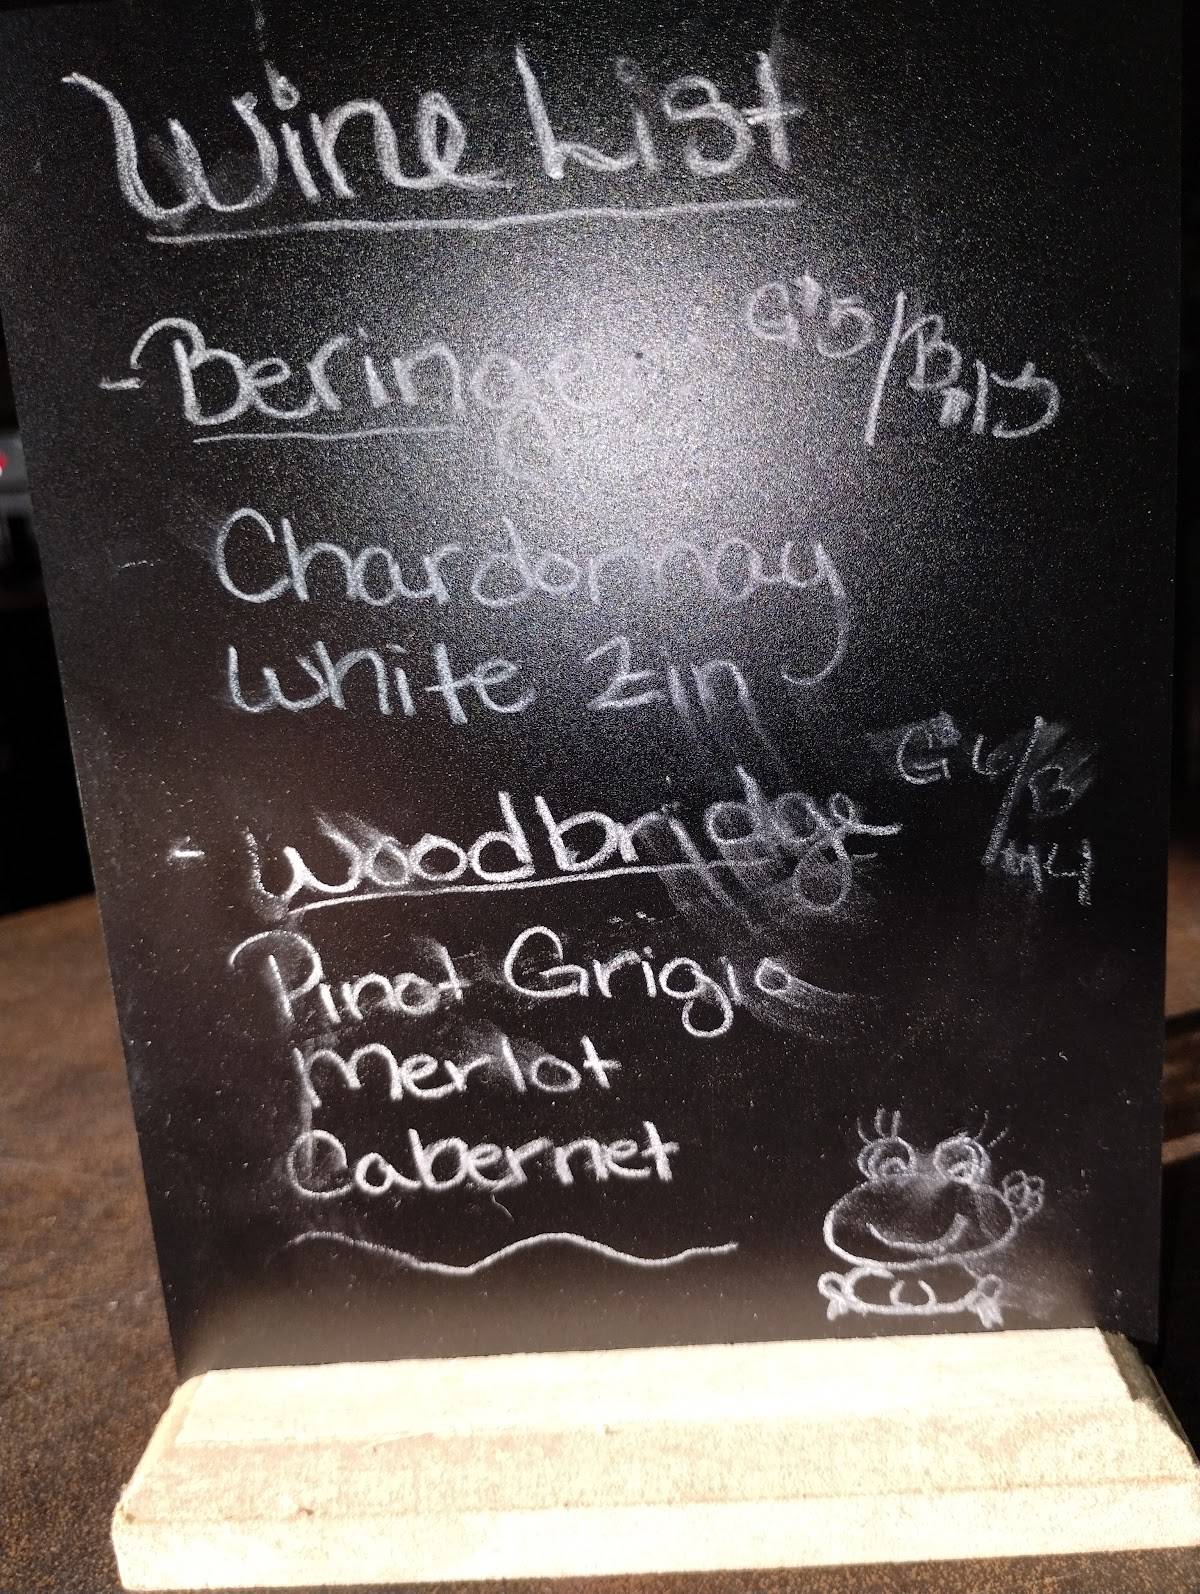 Wine List
- Beringer G$5/B$13
Chardonnay
White Zin
- Woodbridge G$6/B$14
Pinot Grigio
Merlot
Cabernet